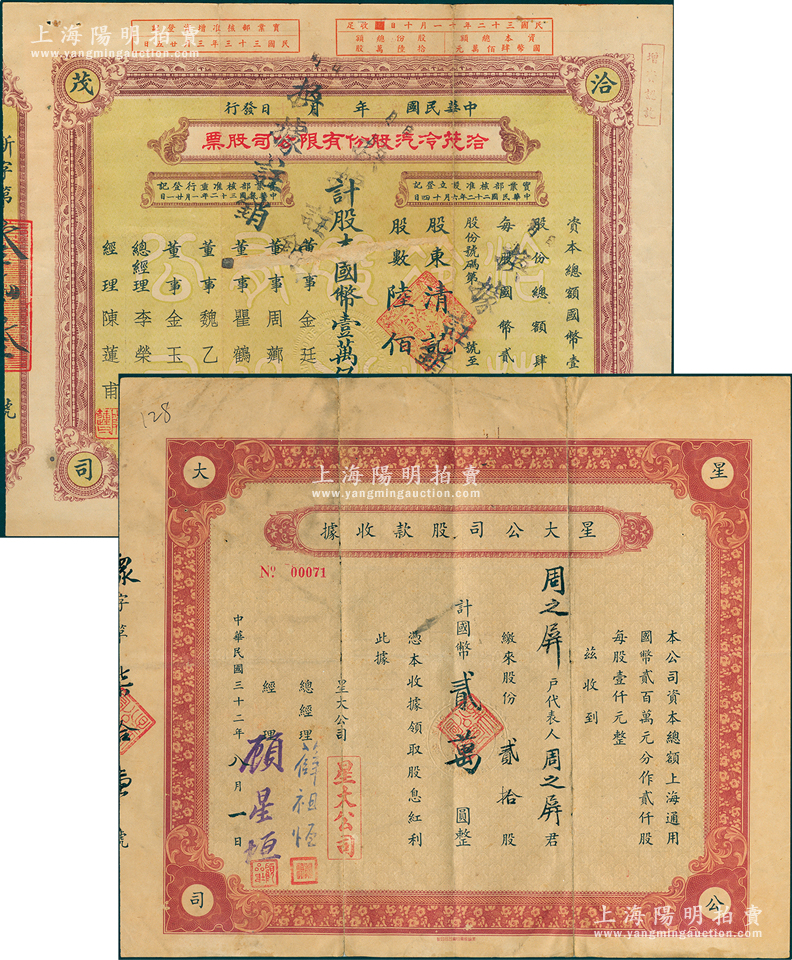 實業部核准增資登記
民國三十三年三月廿五日
民國三十二年十一月十日收足
資本總額 國幣肆佰萬元
股份總額 拾陸萬股
增資訖
上海陽明拍賣
www.yangmingauction.com
洽
茂
司
中華民國 年 月 日發行
洽茂冷汽股份有限公司股票
實業部核准設立登記
中華民國二十二年六月十四日
實業部核准重行登記
中華民國三十二年一月廿一日
資本總額國幣壹
股份總額肆
每股國幣貳
股份號碼第 號至
股東清記
股數陸佰
計股本國幣壹萬
換票註銷
董事金廷
董事周薌
董事瞿鶴
董事魏乙
董事金玉
總經理李榮
經理陳蓮甫
新字第
號
128
上海陽明拍賣
www.yangmingauction.com
星
大
公
司
星大公司股款收據
No 00071
本公司資本總額上海通用
國幣貳百萬元分作貳仟股
每股壹仟元整
茲收到
周之屏戶代表人周之屏君
繳來股份貳拾股
計國幣貳萬圓整
憑本收據領取股息紅利
此據
星大公司
總經理薛祖恆
經理顧星垣
星大公司
中華民國三十二年八月一日
號
上海陽明拍賣
www.yangmingauction.com